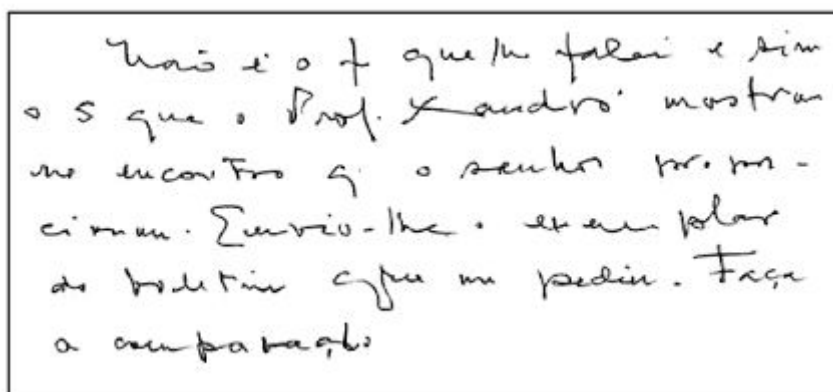 Não é o f que lhe falei e sim
o S que o Prof. Xandró mostrou
no encontro q o senhor propor-
cionou. Envio-lhe o exemplar
do boletim que me pediu. Faça
a comparação